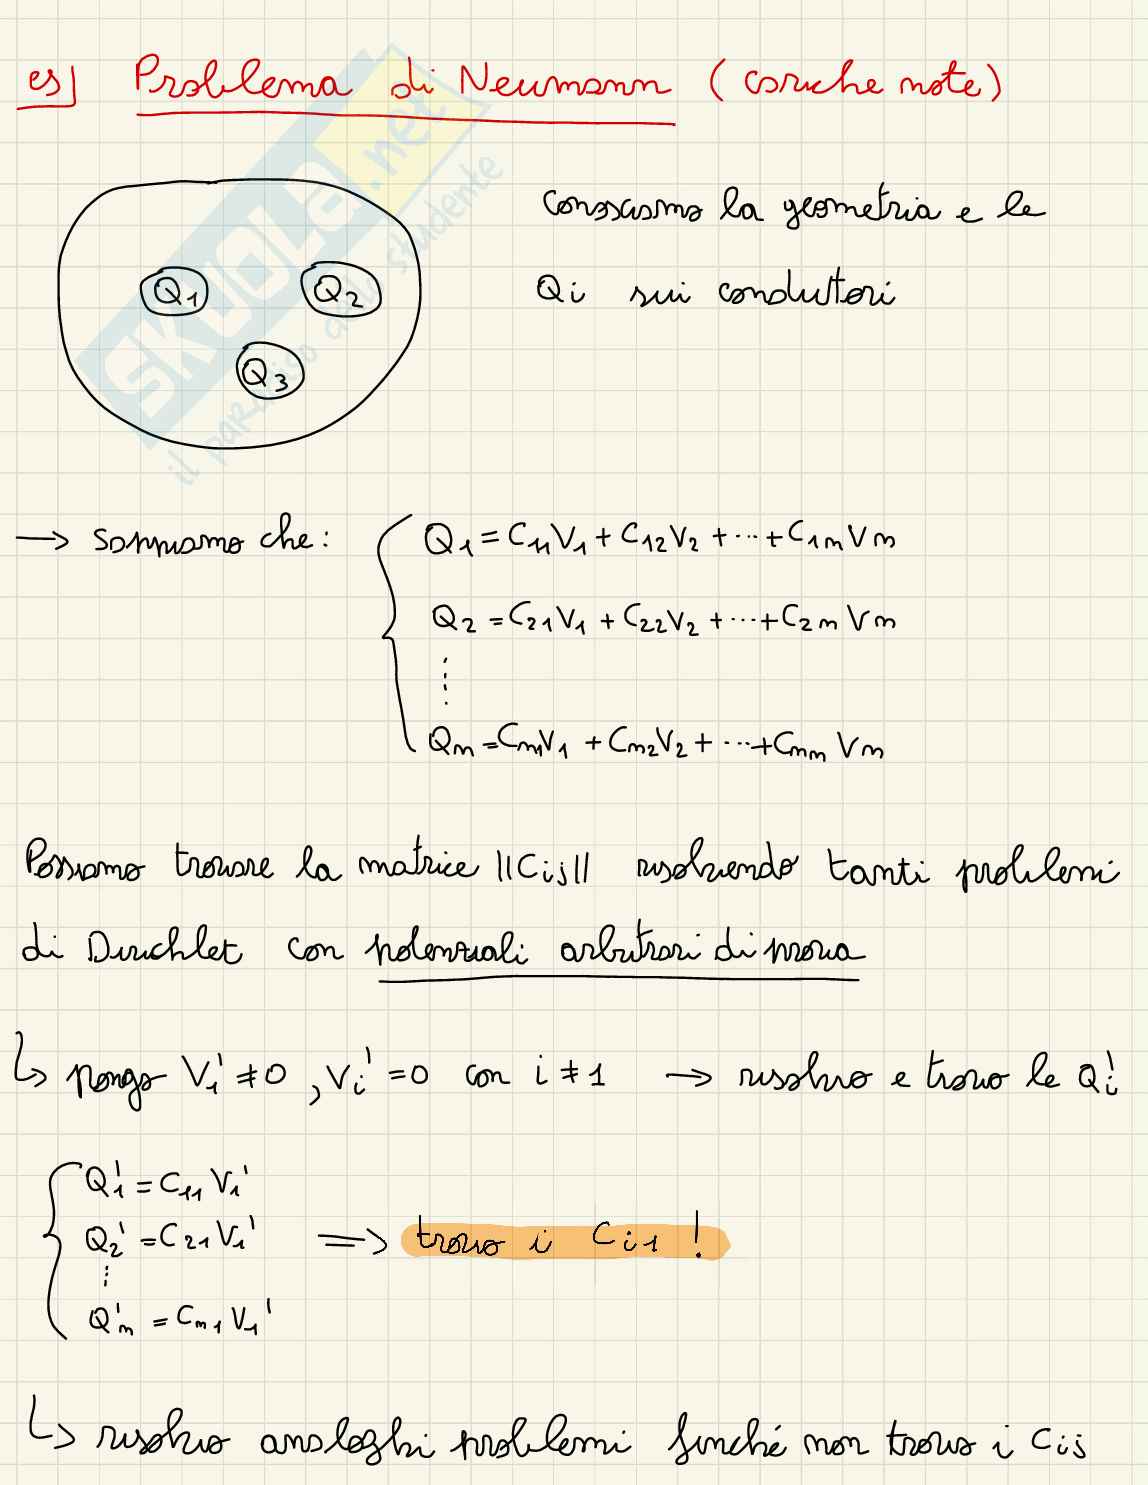 es] Problema di Neumann (cariche note)
conosciamo la geometria e le
Qi sui conduttori
Q1 Q2
Q3
SKUOLA.net
il paradiso dello studente
→ sappiamo che: { Q1 = C11V1 + C12V2 + ... + C1nVn
Q2 = C21V1 + C22V2 + ... + C2nVn
⋮
Qn = Cn1V1 + Cn2V2 + ... + Cnn Vn
Possiamo trovare la matrice ||Cij|| risolvendo tanti problemi
di Dirichlet con potenziali arbitrari di prova
↳ pongo V1' ≠ 0, Vi' = 0 con i ≠ 1 → risolvo e trovo le Qi'
{ Q1' = C11 V1'
Q2' = C21 V1' ⇒ trovo i Ci1 !
⋮
Qn' = Cn1 V1'
↳ risolvo analoghi problemi finché non trovo i Cij